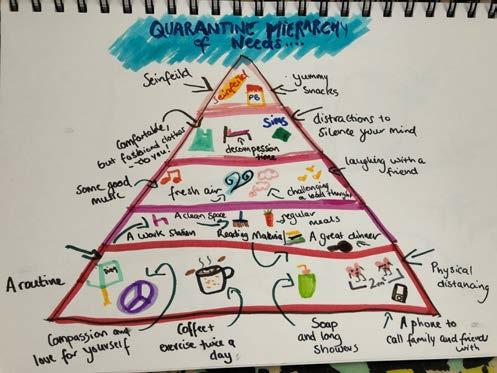 QUARANTINE HIERARCHY
of Needs....
Seinfeild
Seinfeild
PB
yummy
snacks
Comfortable,
but fashiond clothes
- Do you!
Sims
decompession
time
distractions to
Silence your mind
some good
music
fresh air
challenging
a bad thought
laughing with a
friend
A clean space
regular
meals
A work station
Reading Material
A great dinner
A routine
2m
Physical
distancing
Compassion and
love for yourself
Coffee +
exercise twice a
day
Soap
and long
showers
A phone to
call family and friends
with